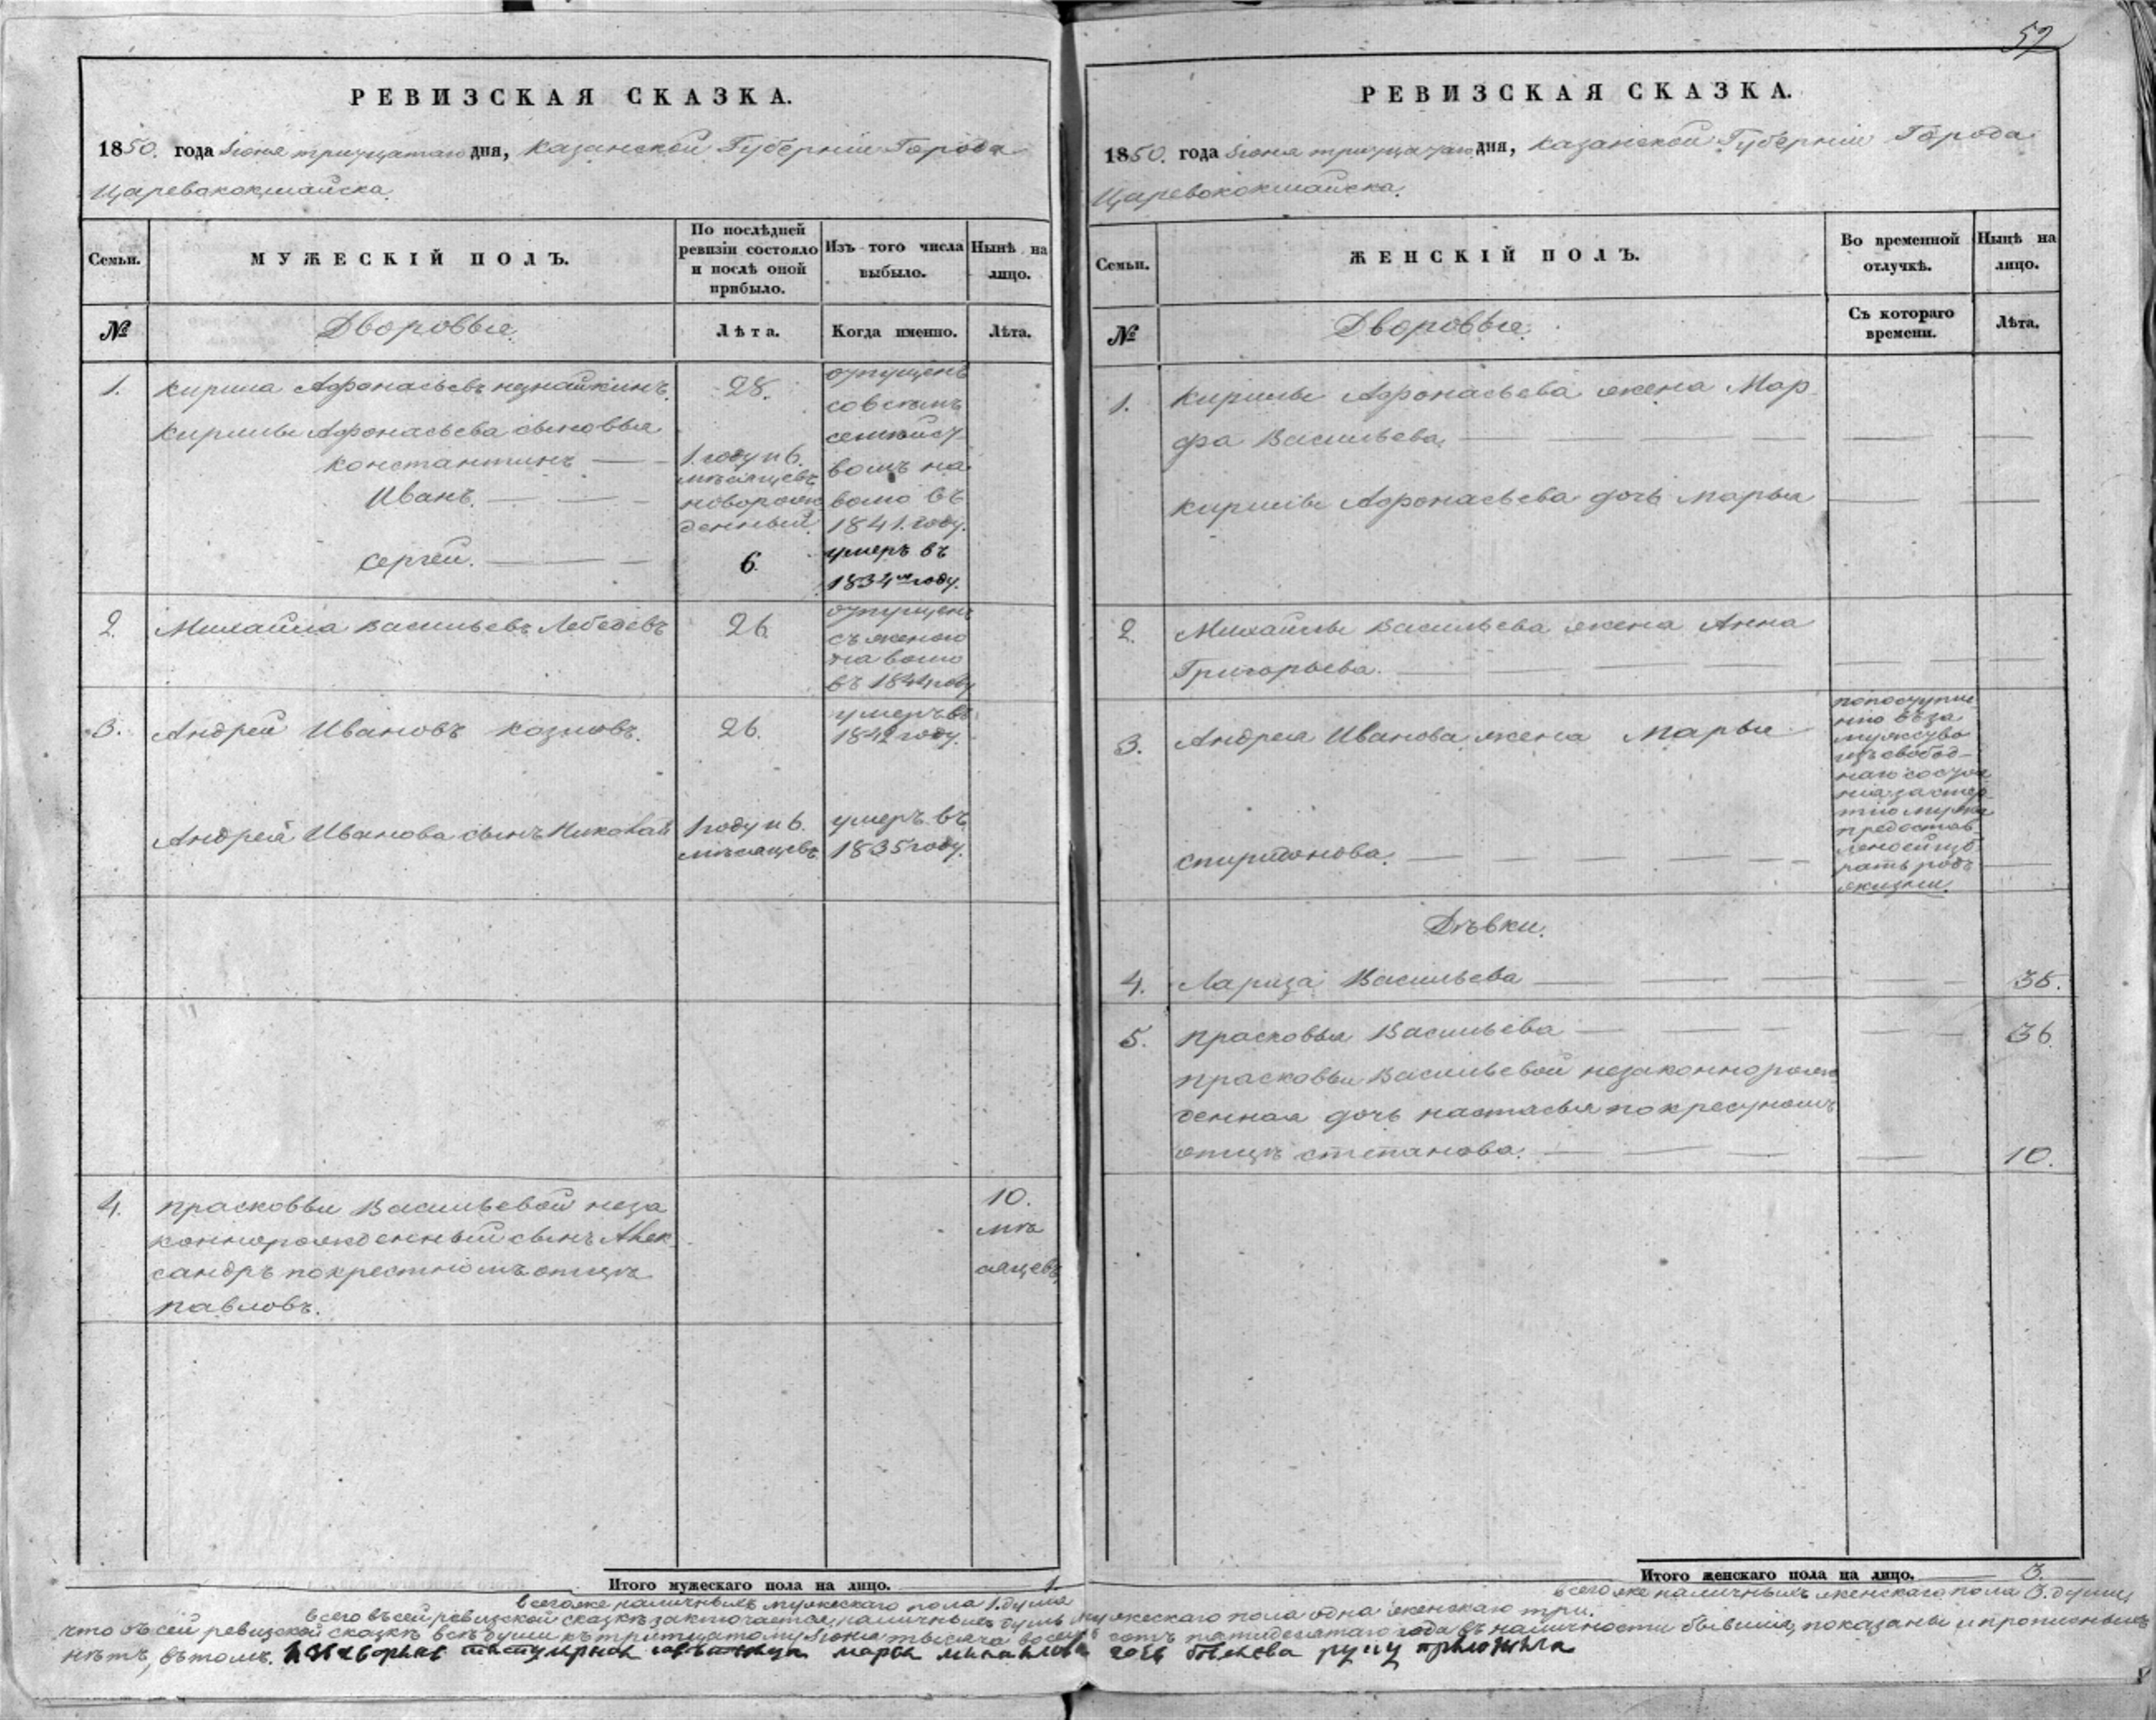 РЕВИЗСКАЯ СКАЗКА.
1850. года Іюня тридцатаго дня, Казанской Губерніи Города
Царевококшайска.
Семьи.
МУЖЕСКІЙ ПОЛЪ.
По послѣдней
ревизіи состояло
и послѣ оной
прибыло.
Изъ того числа
выбыло.
Нынѣ на
лицо.
№
Дворовые.
Лѣта.
Когда именно.
Лѣта.
1. Кирила Афонасьевъ Незнайкинъ. 28.
отпущенъ
совсемъ
семейст
вомъ на
волю въ
1841. году.
Кирилы Афонасьева сыновья
Константинъ
1. году и 6.
мѣсяцевъ
Иванъ.
новорож
денный
Сергей. 6.
умеръ въ
1834мъ году.
2. Михайла Васильевъ Лебедевъ 26.
отпущенъ
съ женою
на волю
въ 1844 году
3. Андрей Ивановъ Козловъ. 26.
умеръ въ
1842 году.
Андрея Иванова сынъ Николай
1 году и 6.
мѣсяцевъ
умеръ въ
1835 году.
4. Прасковьи Васильевой неза
коннорожденный сынъ Алек
сандръ по крестномъ отцѣ
Павловъ.
10.
мѣ
сяцевъ
Итого мужескаго пола на лицо. 1.
всего же наличныхъ мужескаго пола 1. душа
57
РЕВИЗСКАЯ СКАЗКА.
1850. года Іюня тридцатаго дня, Казанской Губерніи Города
Царевококшайска.
Семьи.
ЖЕНСКІЙ ПОЛЪ.
Во временной
отлучкѣ.
Нынѣ на
лицо.
№
Дворовые.
Съ котораго
времени.
Лѣта.
1. Кирилы Афонасьева жена Мар
фа Васильева,
Кирилы Афонасьева дочь Марья
2. Михайлы Васильева жена Анна
Григорьева.
3. Андрея Иванова жена Марья
Спиридонова.
по поступле
нію въ за
мужство
изъ свобод
наго состоя
нія за смер
тію мужа
предостав
лено ей изб
рать родъ
жизни.
Дѣвки.
4. Лариза Васильева 38.
5. Прасковья Васильева 36.
Прасковьи Васильевой незаконнорож
денная дочь Настасья по крестномъ
отцѣ Степанова. 10.
Итого женскаго пола на лицо. 3.
всего же наличныхъ женскаго пола 3. души,
всего въ сей ревизской сказкѣ заключается, наличныхъ душъ мужескаго пола одна женскаго три.
что въ сей ревизской сказкѣ всѣ души къ тритцатому Іюня тысяча восемь сотъ пятидесятаго года въ наличности бывшія, показаны и прописныхъ
нѣтъ, въ томъ. титулярная марфа михаилова дочь руку приложила